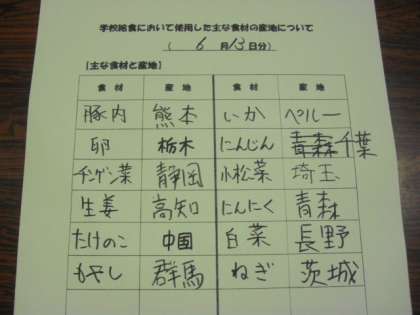 学校給食において使用した主な食材の産地について
( 6月13日分)
【主な食材と産地】
食材 産地 食材 産地
豚肉 熊本 いか ペルー
卵 栃木 にんじん 青森千葉
チンゲン菜 静岡 小松菜 埼玉
生姜 高知 にんにく 青森
たけのこ 中国 白菜 長野
もやし 群馬 ねぎ 茨城